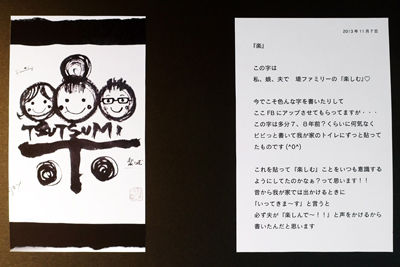 TSUTSUMI
2013年11月7日
『楽』
この字は
私、娘、夫で 堤ファミリーの『楽しむ』♡
今でこそ色んな字を書いたりして
ここFBにアップさせてもらってますが・・・
この字は多分7、8年前?くらいに何気なく
ピピっと書いて我が家のトイレにずっと貼ってた
たものです(^O^)
これを貼って『楽しむ』ことをいつも意識する
ようにしてたのかなぁ?って思います!!
昔から我が家では出かけるときに
「いってきま〜す」と言うと
必ず夫が「楽しんで〜!!」と声をかけるから
書いたんだと思います